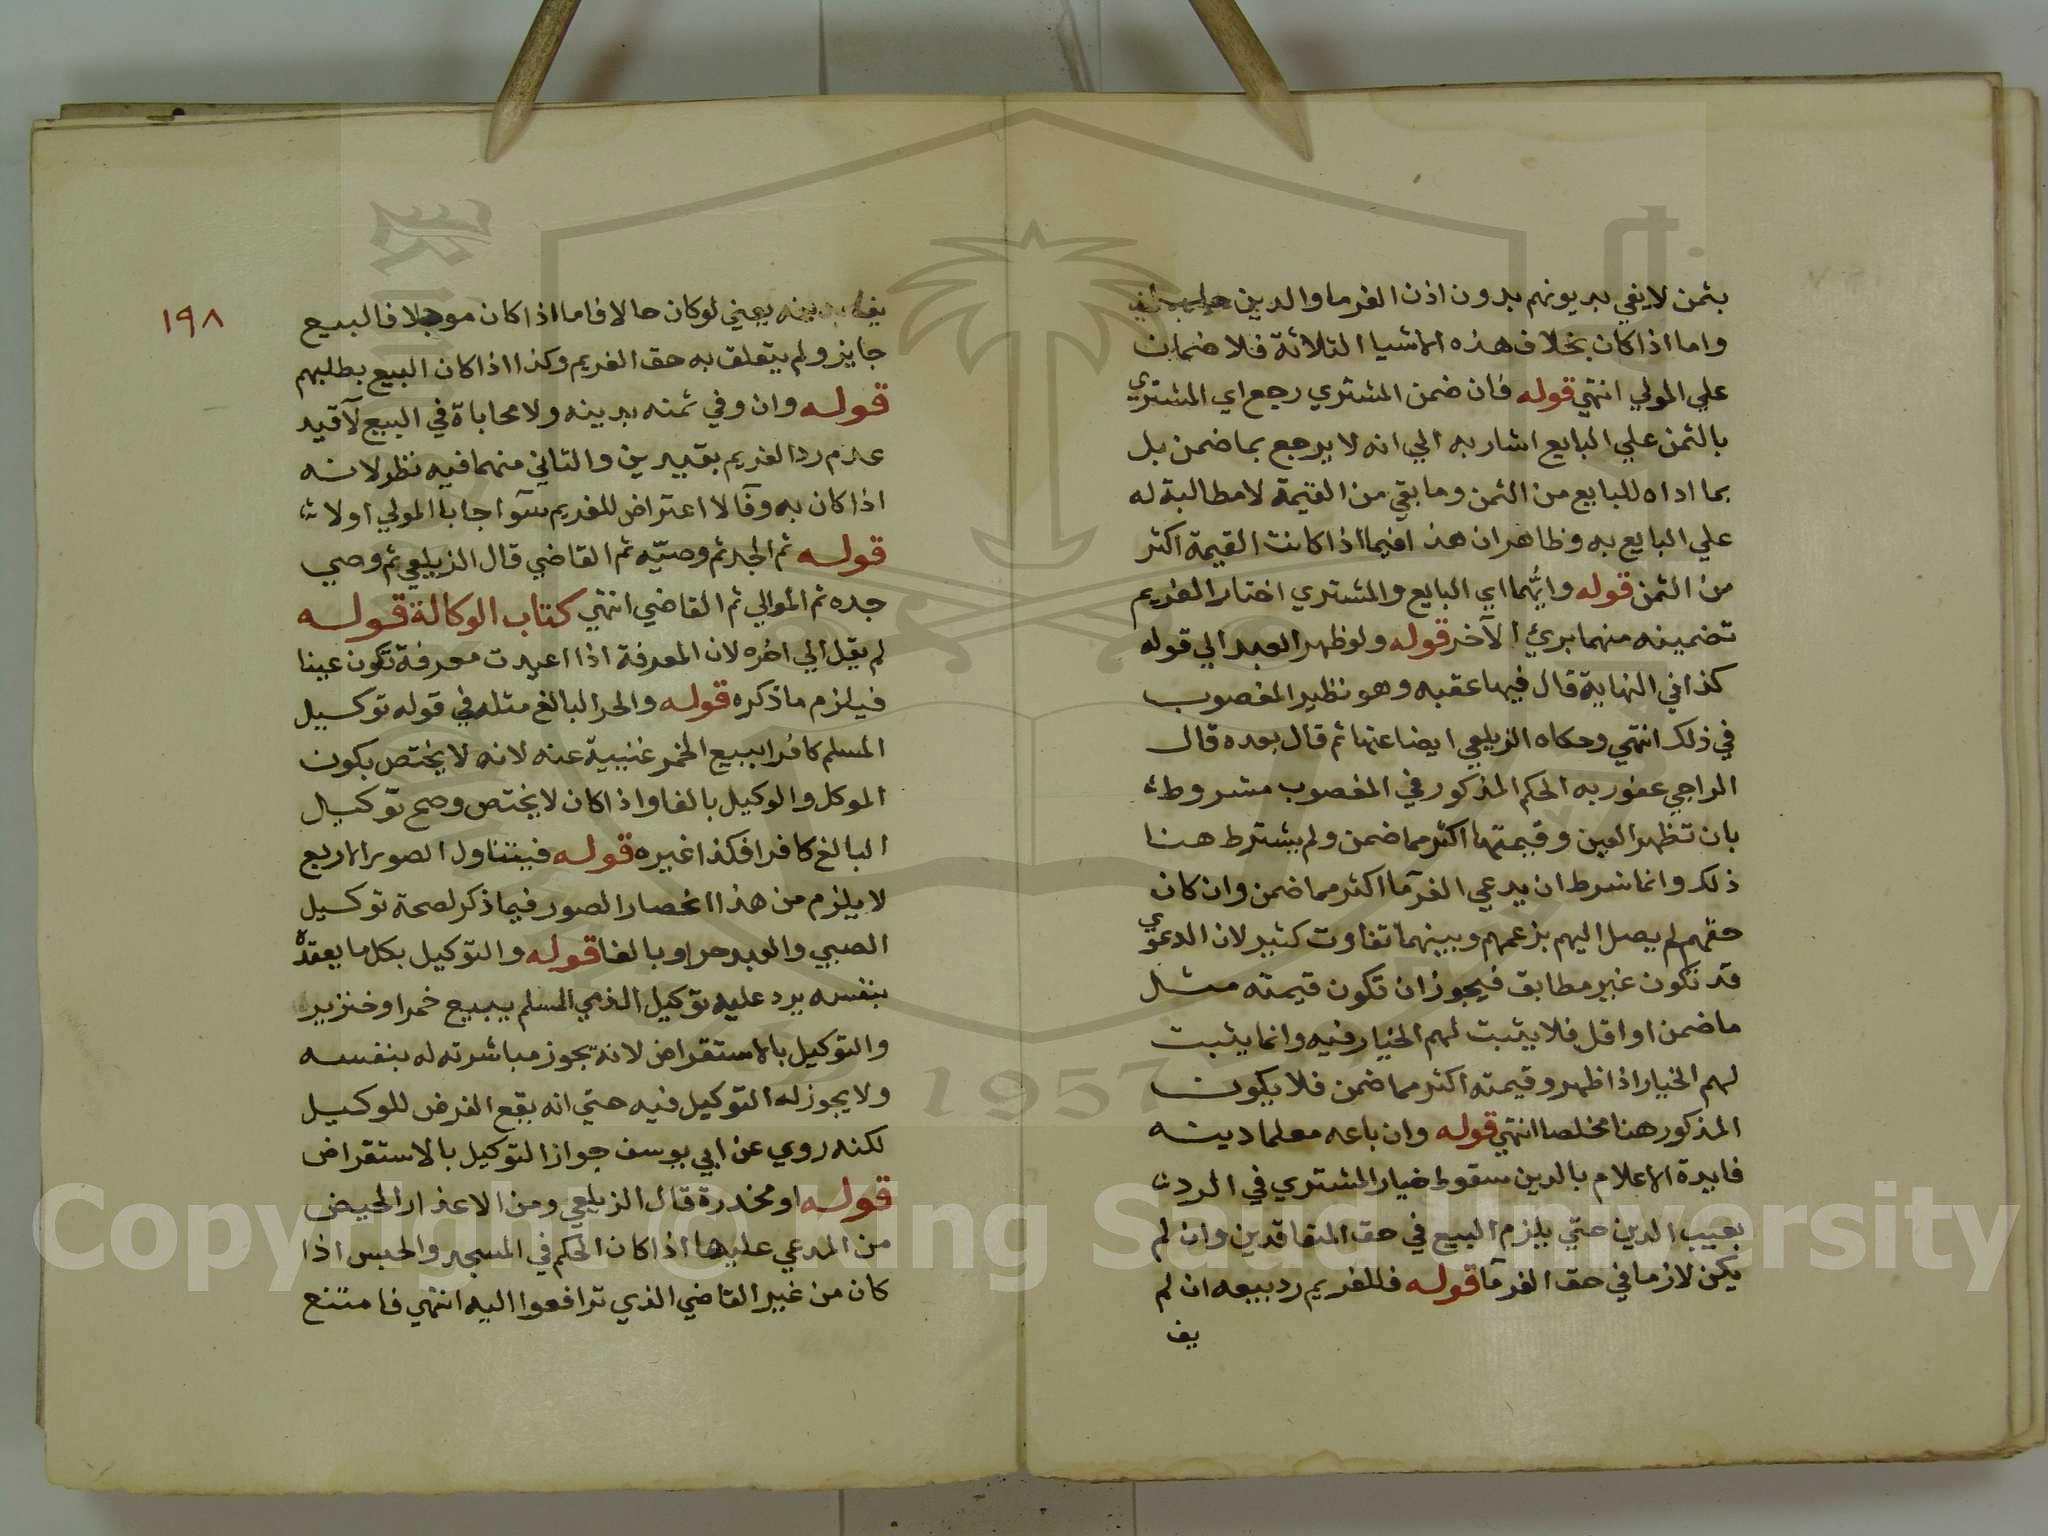 بثمن لا يفي بديونهم بدون اذن الغرما والدين
واما اذا كان بخلاف هذه الاشيا الثلاثة فلا ضمان
علي المولي انتهي قوله فان ضمن المشتري رجع اي المشتري
بالثمن علي البايع اشار به الي انه لا يرجع بما ضمن بل
بما اداه للبايع من الثمن وما بقي من القيمة لا مطالبة له
علي البايع به وظاهر ان هذا فيما اذا كانت القيمة اكثر
من الثمن قوله وايهما اي البايع والمشتري اختار الغريم
تضمينه منهما برئ الآخر قوله ولو ظهر العبد الي قوله
كذا في النهاية قال فيها عقبه وهو نظير المغصوب
في ذلك انتهي وحكاه الزيلعي ايضا عنها ثم قال بعده قال
الراجي عفو ربه الحكم المذكور في المغصوب مشروط
بان تظهر العين وقيمتها اكثر مما ضمن ولم يشترط هنا
ذلك وانما شرط ان يدعي الغرمآ اكثر مما ضمن وان كان
حقهم لم يصل اليهم بزعمهم وبينهما تفاوت كثير لان الدعوي
قد تكون غير مطابق فيجوز ان تكون قيمته مثل
ما ضمن او اقل فلا يثبت لهم الخيار فيه وانما يثبت
لهم الخيار اذا ظهر وقيمته اكثر مما ضمن فلا يكون
المذكور هنا مخلصا انتهي قوله وان باعه معلما دينه
فايدة الاعلام بالدين سقوط خيار المشتري في الرد
بعيب الدين حتي يلزم البيع في حق المتعاقدين وان لم
يكن لازما في حق الغرمآ قوله فللغريم رد بيعه ان لم
يف
١٩٨
يف بدينه يعني لو كان حالا فاما اذا كان موجلا فالبيع
جايز ولم يتعلق به حق الغريم وكذا اذا كان البيع بطلبهم
قوله وان وفي ثمنه بدينه ولا محاباة في البيع لآ قيد
عدم رد الغريم بقيدين والثاني منهما فيه نظر لانه
اذا كان به وفآ لا اعتراض للغريم سوآ حابا المولي اولا
قوله ثم الجد ثم وصيه ثم القاضي قال الزيلعي ثم وصي
جده ثم الموالي ثم القاضي انتهي كتاب الوكالة قوله
لم يقل الي اخره لان المعرفة اذا اعيدت معرفة تكون عينا
فيلزم ما ذكره قوله والحر البالغ مثله في قوله توكيل
المسلم كافرا ببيع الخمر غنيية عنه لانه لا يختص بكون
الموكل والوكيل بالغا واذا كان لا يختص وصح توكيل
البالغ كافرا فكذا غيره قوله فيتناول الصور الاربع
لا يلزم من هذا انحصار الصور فيما ذكر لصحة توكيل
الصبي والعبد حرا وبالغا قوله والتوكيل بكل ما يعقده
بنفسه يرد عليه توكيل الذمي المسلم ببيع خمر او خنزير
والتوكيل بالاستقراض لانه يجوز مباشرته له بنفسه
ولا يجوز له التوكيل فيه حتي انه يقع القرض للوكيل
لكنه روي عن ابي يوسف جواز التوكيل بالاستقراض
قوله او مخدرة قال الزيلعي ومن الاعذار الحيض
من المدعي عليها اذا كان الحكم في المسجد والحبس اذا
كان من غير القاضي الذي ترافعوا اليه انتهي فامتنع
Copyright © King Saud University
1957